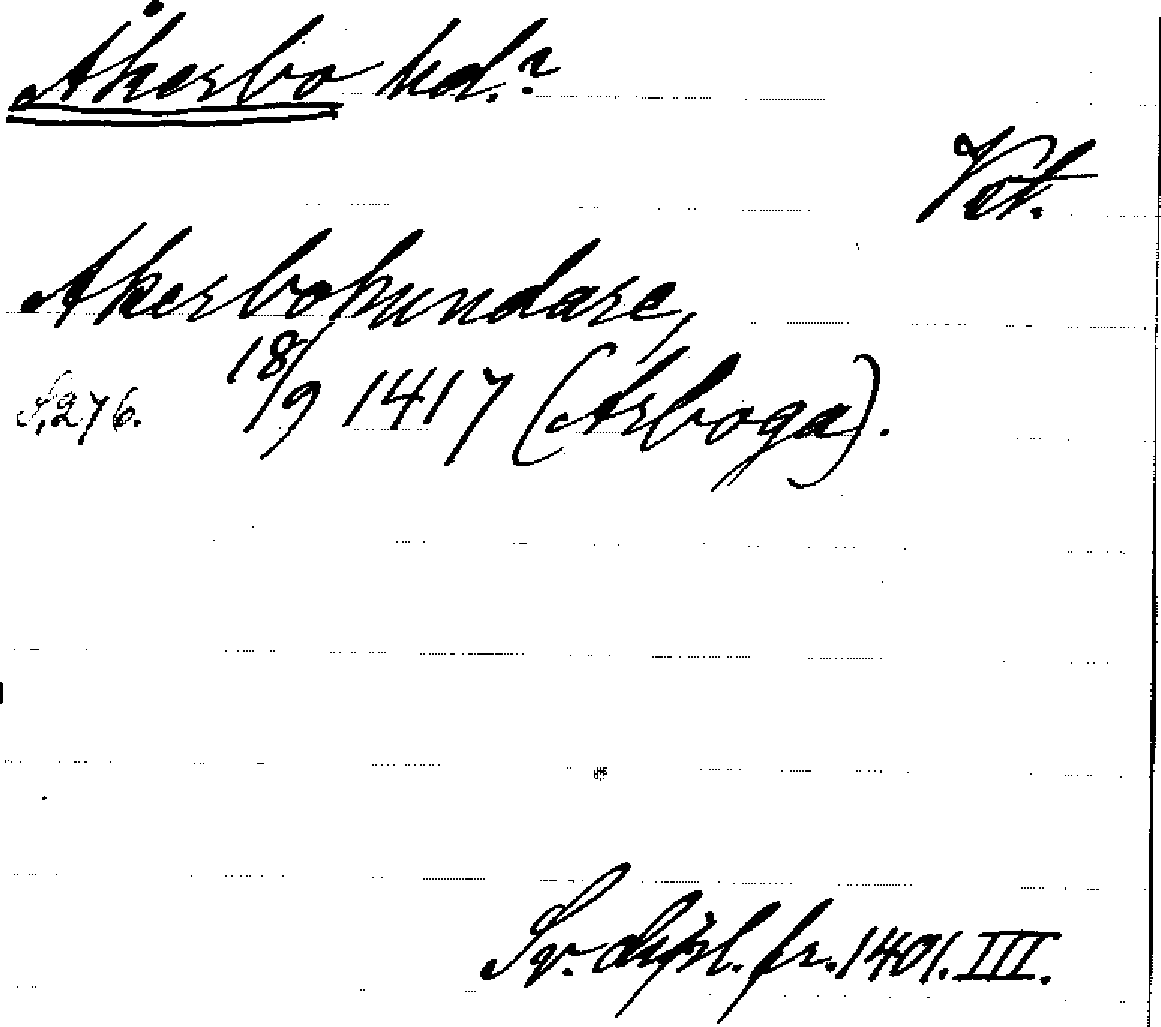 Åkerbo hd.?
Vst.
Akerbohundare,
S. 276. 18/9 1417 (Arboga).
Sv. dipl. fr. 1401. III.